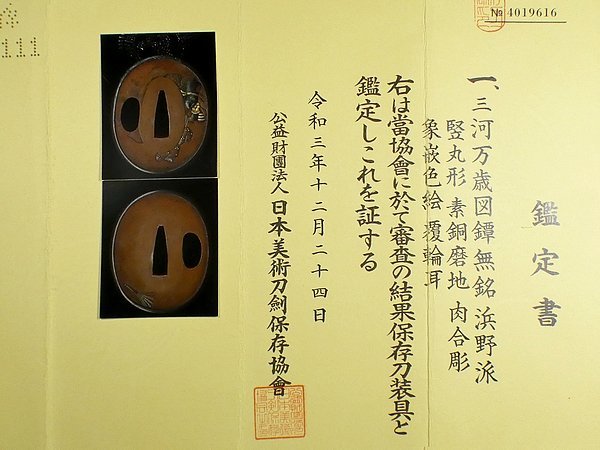 № 4019616
111
鑑定書
一、三河万歳図鐔 無銘 浜野派
竪丸形 素銅磨地 肉合彫
象嵌色絵 覆輪耳
右は當協會に於て審査の結果保存刀装具と
鑑定しこれを証する
令和三年十二月二十四日
公益財團法人 日本美術刀劍保存協會